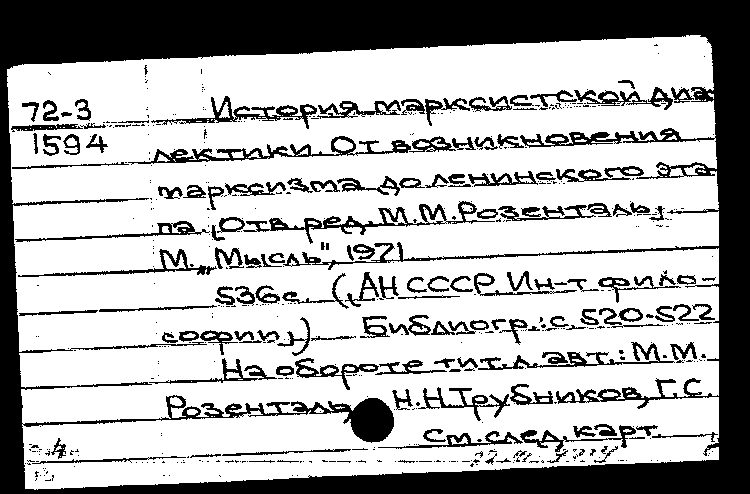 72-3 История марксистской диа-
1594 лектики. От возникновения
марксизма до ленинского эта-
па. [Отв. ред. М.М.Розенталь].
М. „Мысль", 1971
536с. ([АН СССР. Ин-т фило-
софии].) Библиогр.: с. 520-522
На обороте тит. л. авт.: М.М.
Розенталь, Н.Н.Трубников, Г.С.
См. след. карт.